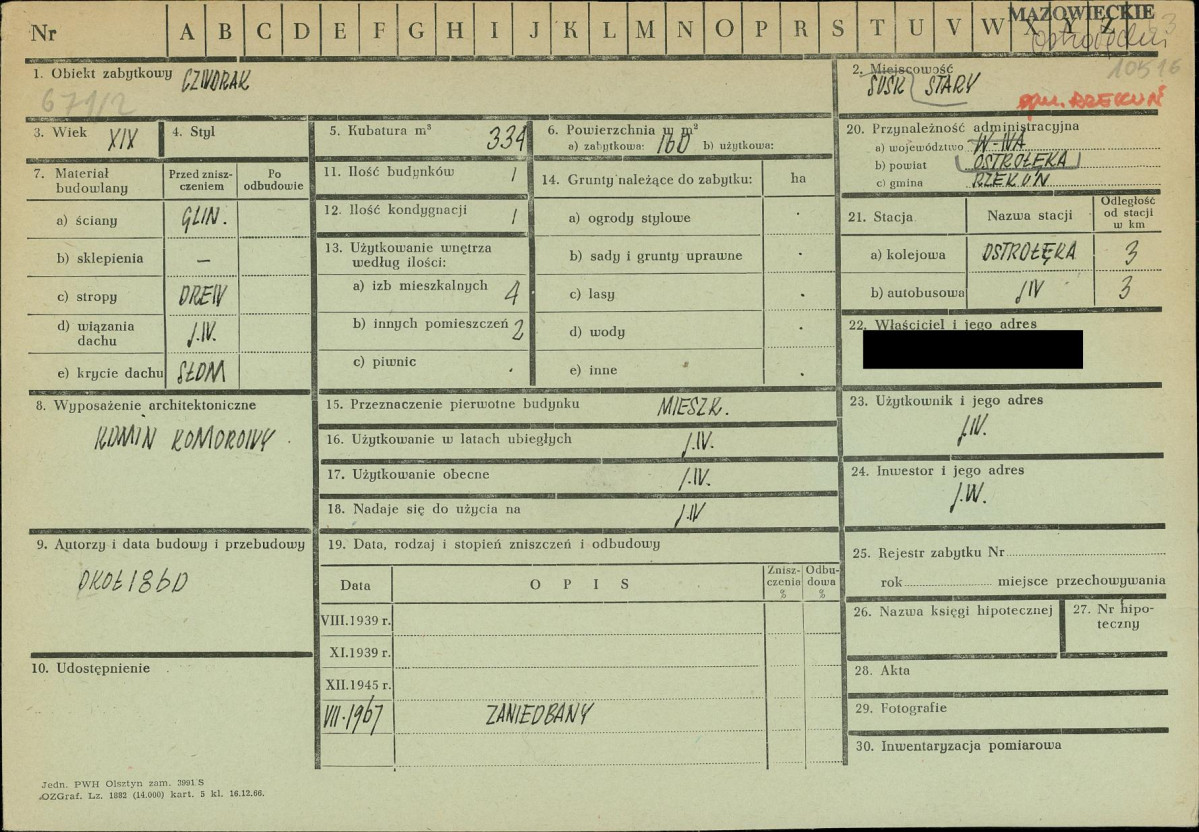 Nr A B C D E F G H I J K L M N O P R S T U V W X Y Z
MAZOWIECKIE
10516
1. Obiekt zabytkowy CZWORAK
671/2
2. Miejscowość
SUSK STARY
gm. RZEKUŃ
3. Wiek XIX
4. Styl
5. Kubatura m³ 334
6. Powierzchnia w m²
a) zabytkowa: 160 b) użytkowa:
7. Materiał budowlany
Przed zniszczeniem
Po odbudowie
a) ściany GLIN.
b) sklepienia —
c) stropy DREW
d) wiązania dachu J.W.
e) krycie dachu SŁOM
11. Ilość budynków 1
12. Ilość kondygnacji 1
13. Użytkowanie wnętrza
według ilości:
a) izb mieszkalnych 4
b) innych pomieszczeń 2
c) piwnic .
14. Grunty należące do zabytku: ha
a) ogrody stylowe .
b) sady i grunty uprawne .
c) lasy .
d) wody .
e) inne .
20. Przynależność administracyjna
a) województwo W-WA
b) powiat OSTROŁĘKA
c) gmina RZEKUŃ
21. Stacja
Nazwa stacji
Odległość
od stacji
w km
a) kolejowa OSTROŁĘKA 3
b) autobusowa J.W 3
22. Właściciel i jego adres
8. Wyposażenie architektoniczne
KOMIN KOMOROWY
15. Przeznaczenie pierwotne budynku MIESZK.
16. Użytkowanie w latach ubiegłych J.W.
17. Użytkowanie obecne J.W.
18. Nadaje się do użycia na J.W
23. Użytkownik i jego adres
J.W.
24. Inwestor i jego adres
J.W.
9. Autorzy i data budowy i przebudowy
OKOŁ 1860
19. Data, rodzaj i stopień zniszczeń i odbudowy
Data
O P I S
Zniszczenia %
Odbudowa %
VIII.1939 r.
XI.1939 r.
XII.1945 r.
VII-1967 ZANIEDBANY
25. Rejestr zabytku Nr
rok miejsce przechowywania
26. Nazwa księgi hipotecznej
27. Nr hipoteczny
28. Akta
29. Fotografie
30. Inwentaryzacja pomiarowa
10. Udostępnienie
Jedn. PWH Olsztyn zam. 3991 S
OZGraf. Lz. 1882 (14.000) kart. 5 kl. 16.12.66.